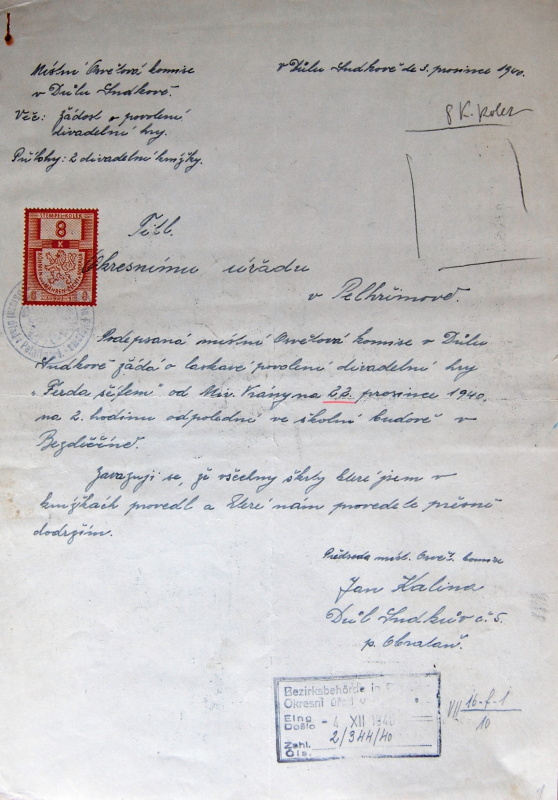 Místní Osvětová komise
v Důlu Sudkově.
v Důlu Sudkově de 3. prosince 1940.
Věc: žádost o povolení
divadelní hry.
Přílohy: 2 divadelní knížky.
8 K. kolek
8
K
Titl.
Okresnímu úřadu
v Pelhřimově.
Podepsaná místní Osvětová komise v Důlu
Sudkově žádá o laskavé povolení divadelní hry
„Ferda šéfem" od Mir. Vrány na 22. prosince 1940.
na 2. hodinu odpolední ve školní budově v
Bezděčíně.
Zavazuji se, že všechny škrty které jsem v
knížkách provedl a které nám provedete přesně
dodržím.
Předseda míst. Osvět. komise
Jan Kalina
Důl Sudkův č. 5
p. Obrataň.
Bezirksbehörde in
Okresní úřad v
Eing.
Došlo - 4. XII 1940
2/344/40
Zahl.
Čís.
VII 16-f-1
10
1